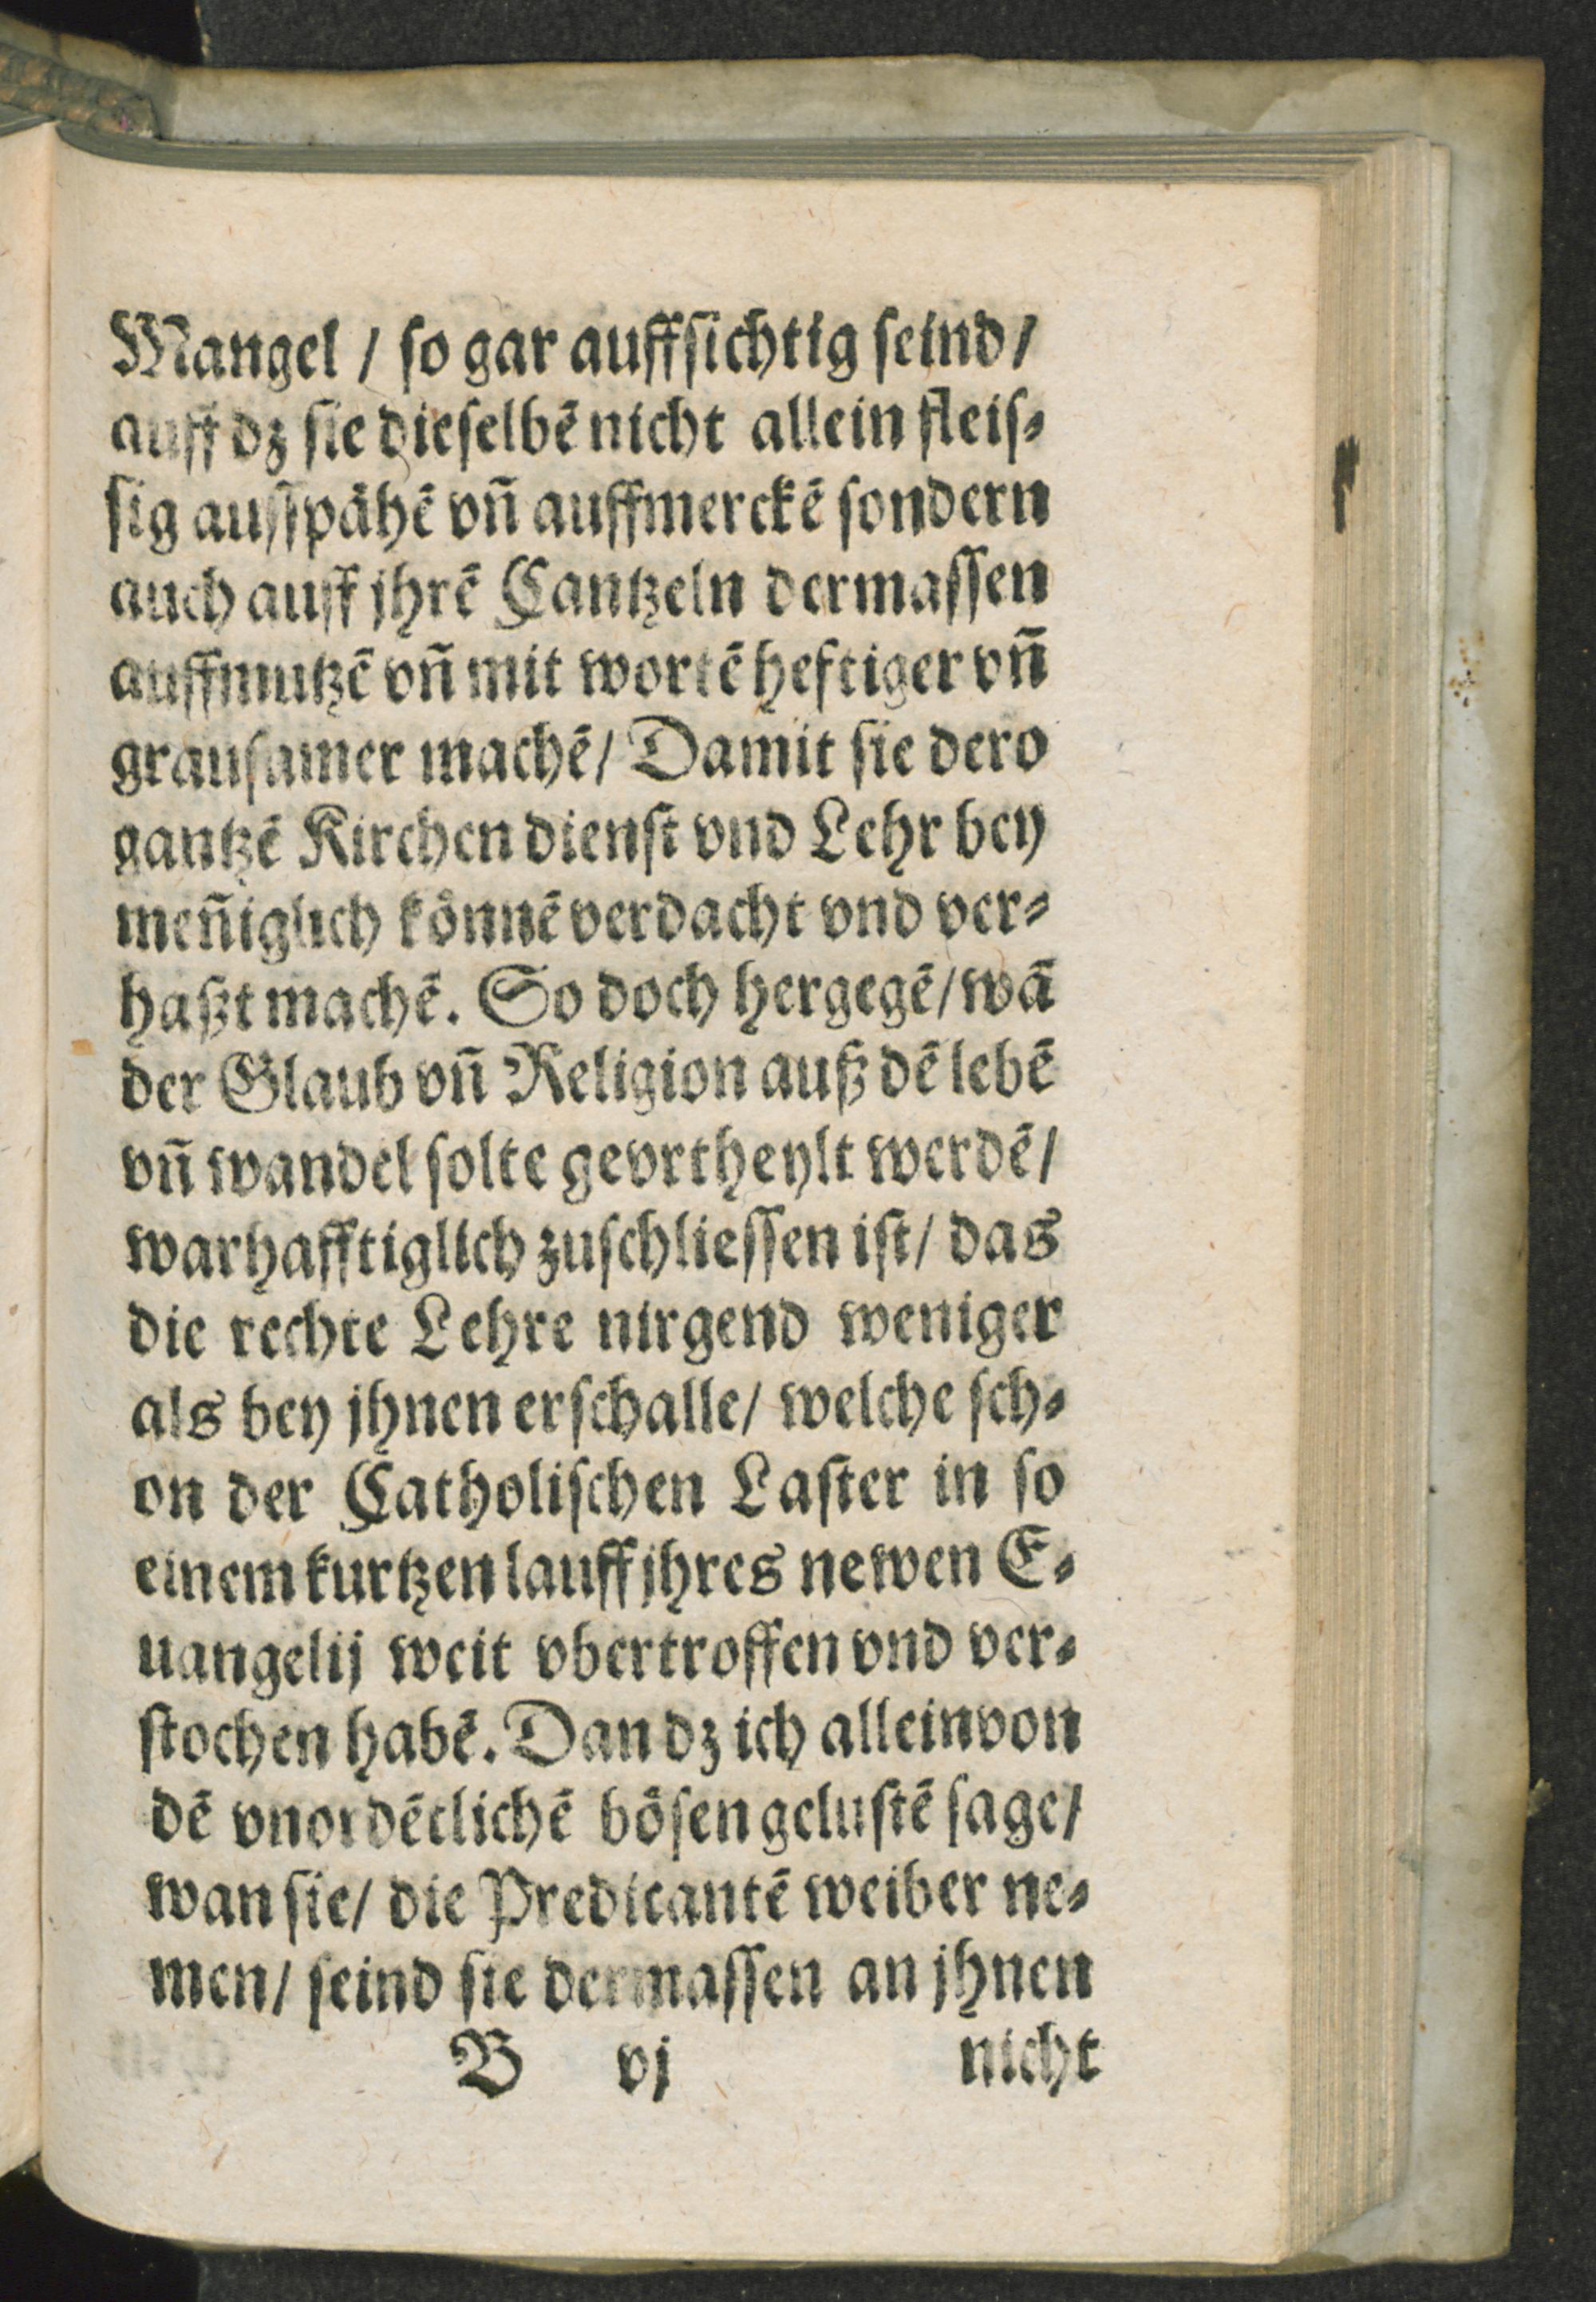 Mangel / so gar auffsichtig seind /
auff dz sie dieselbē nicht allein fleis⸗
sig ausspähē vn̄ auffmerckē sondern
auch auff jhrē Cantzeln dermassen
auffmutzē vn̄ mit wortē heftiger vn̄
grausamer machē / Damit sie dero
gantzē Kirchen dienst vnd Lehr bey
men̄iglich könnē verdacht vnd ver⸗
haßt machē. So doch hergegē / wā
der Glaub vn̄ Religion auß dē lebē
vn̄ wandel solte gevrtheylt werdē /
warhafftiglich zuschliessen ist / das
die rechte Lehre nirgend weniger
als bey jhnen erschalle / welche sch⸗
on der Catholischen Laster in so
einem kurtzen lauff jhres newen E⸗
uangelij weit vbertroffen vnd ver⸗
stochen habē. Dan dz ich allein von
dē vnordētlichē bösen gelustē sage /
wan sie / die Predicantē weiber ne⸗
men / seind sie dermassen an jhnen
B vj nicht